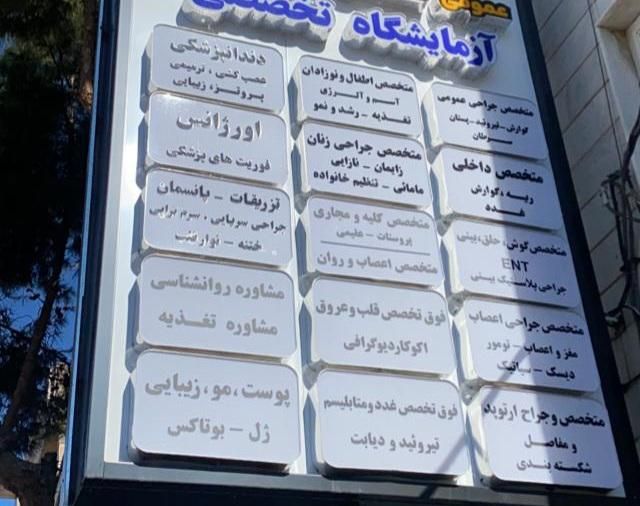 عمومی
آزمایشگاه تخصصی
متخصص جراحی عمومی
گوارش - تیروئید - پستان
سرطان
متخصص داخلی
ریه ، گوارش
غدد
متخصص گوش، حلق، بینی
ENT
جراحی پلاستیک بینی
متخصص جراحی اعصاب
مغز و اعصاب - تومور
دیسک - سیاتیک
متخصص و جراح ارتوپد
و مفاصل
شکسته بندی
متخصص اطفال و نوزادان
آسم و آلرژی
تغذیه - رشد و نمو
متخصص جراحی زنان
زایمان - نازایی
مامائی - تنظیم خانواده
متخصص کلیه و مجاری
پروستات - عقیمی
متخصص اعصاب و روان
فوق تخصص قلب و عروق
اکوکاردیوگرافی
فوق تخصص غدد و متابلیسم
تیروئید و دیابت
دندانپزشکی
عصب کشی ، ترمیمی
پروتز، زیبایی
اورژانس
فوریت های پزشکی
تزریقات - پانسمان
جراحی سرپایی ، سرم تراپی
ختنه - نوار قلب
مشاوره روانشناسی
مشاوره تغذیه
پوست ، مو ، زیبایی
ژل - بوتاکس